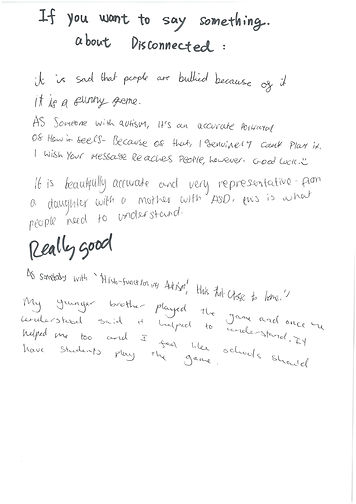 If you want to say something.
about Disconnected :
it is sad that people are bullied because of it
it is a funny game.
AS Someone with autism, it's an accurate portrayal
of How it feels. Because of that, I genuinely can't Play it.
I wish your message Reaches People, however. Good luck. :)
it is beautifully accurate and very representative - from
a daughter with a mother with ASD, this is what
people need to understand.
Really good
As somebody with "High-functioning Autism", this hit close to home."
My younger brother played the game and once he
understood said it helped to understand. It
helped me too and I feel like schools should
have students play the game.